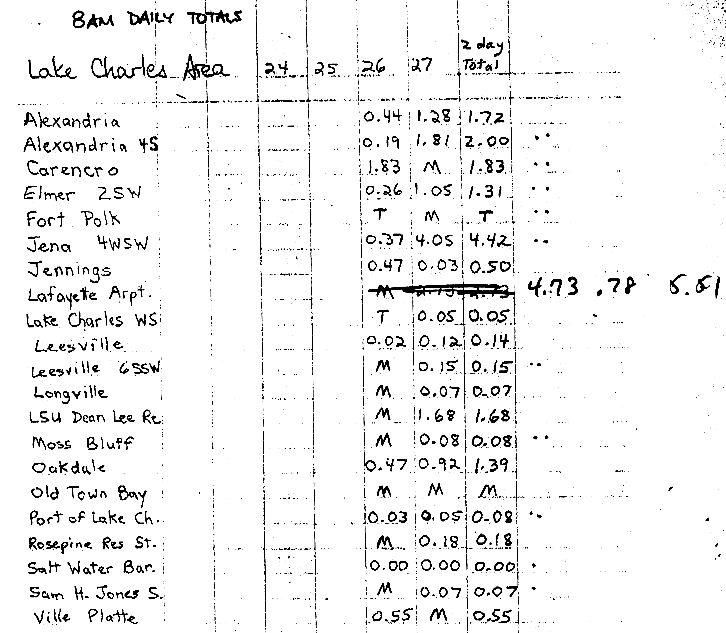 8AM DAILY TOTALS
2 day
Lake Charles Area 24 25 26 27 Total
Alexandria 0.44 1.28 1.72
Alexandria 4S 0.19 1.81 2.00
Carencro 1.83 M 1.83
Elmer 2SW 0.26 1.05 1.31
Fort Polk T M T
Jena 4WSW 0.37 4.05 4.42
Jennings 0.47 0.03 0.50
Lafayette Arpt. M 4.73 .78 5.51
Lake Charles WS T 0.05 0.05
Leesville 0.02 0.12 0.14
Leesville 6SSW M 0.15 0.15
Longville M 0.07 0.07
LSU Dean Lee Re M 1.68 1.68
Moss Bluff M 0.08 0.08
Oakdale 0.47 0.92 1.39
Old Town Bay M M M
Port of Lake Ch. 0.03 0.05 0.08
Rosepine Res St. M 0.18 0.18
Salt Water Bar. 0.00 0.00 0.00
Sam H. Jones S. M 0.07 0.07
Ville Platte 0.55 M 0.55